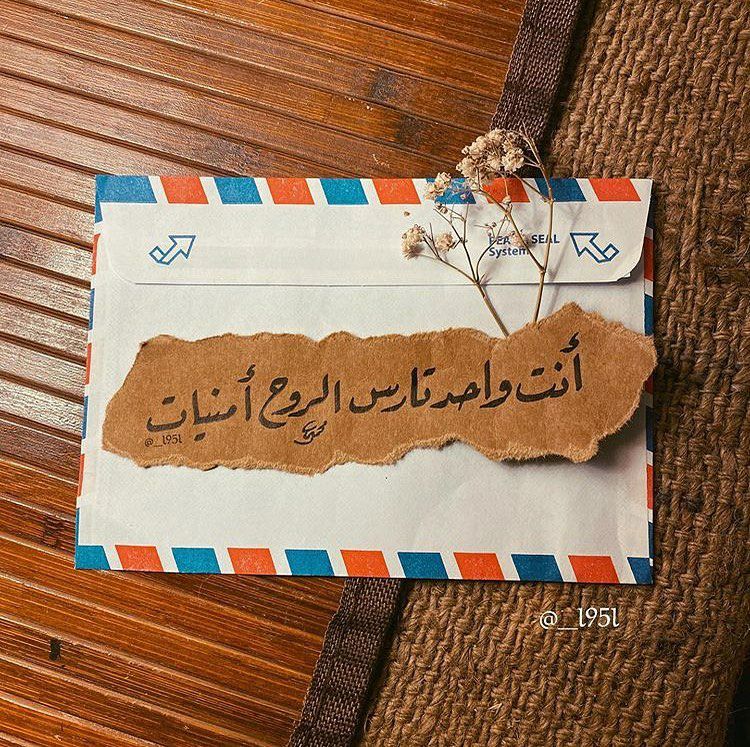 PEA SEAL
System
أنت واحد تارس الروح أمنيات
@__l95l
@__l95l